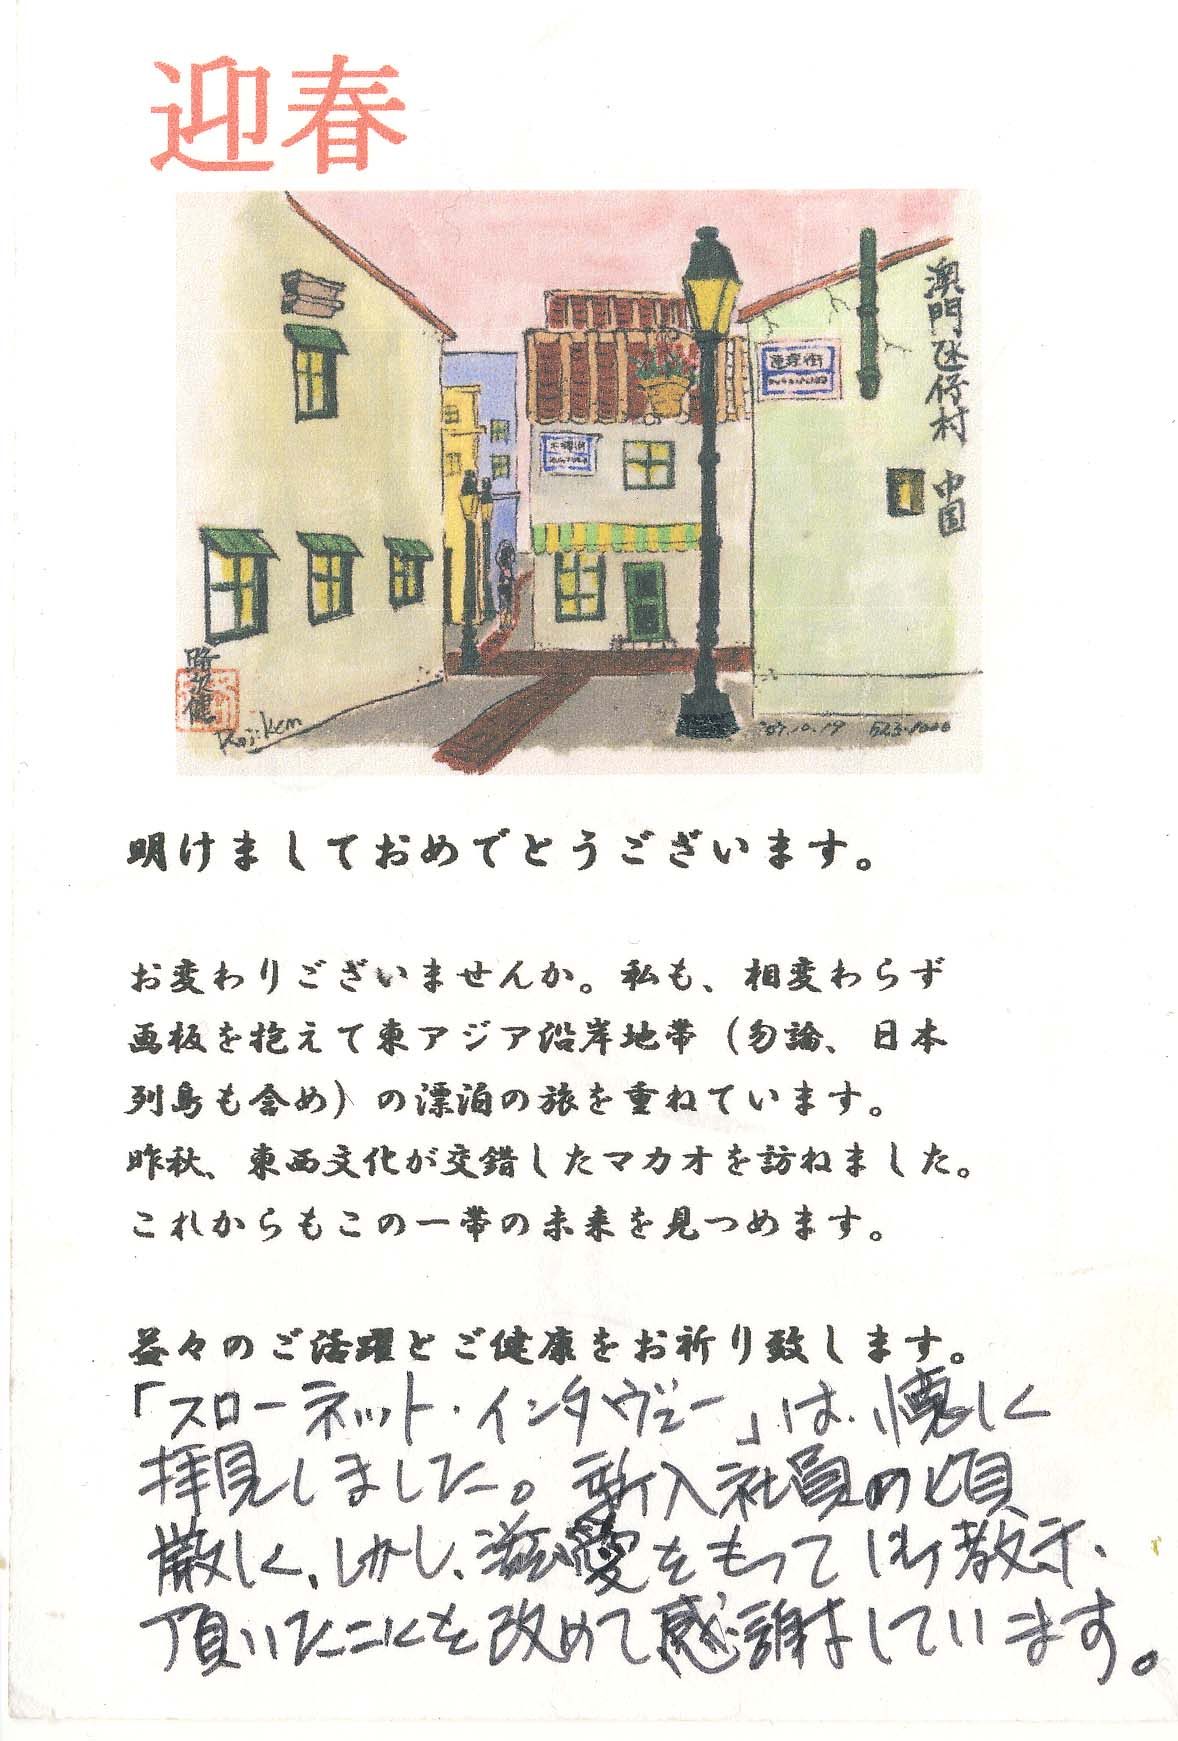 迎春
澳門氹仔村 中国
路地健
Koji.Ken
'07.10.19
明けましておめでとうございます。
お変わりございませんか。私も、相変わらず
画板を抱えて東アジア沿岸地帯（勿論、日本
列島も含め）の漂泊の旅を重ねています。
昨秋、東西文化が交錯したマカオを訪ねました。
これからもこの一帯の未来を見つめます。
益々のご活躍とご健康をお祈り致します。
「スローネット・インタヴュー」は、懐しく
拝見しました。新入社員の頃
厳しく、しかし、滋愛をもって御教示、
頂いたことを改めて感謝しています。